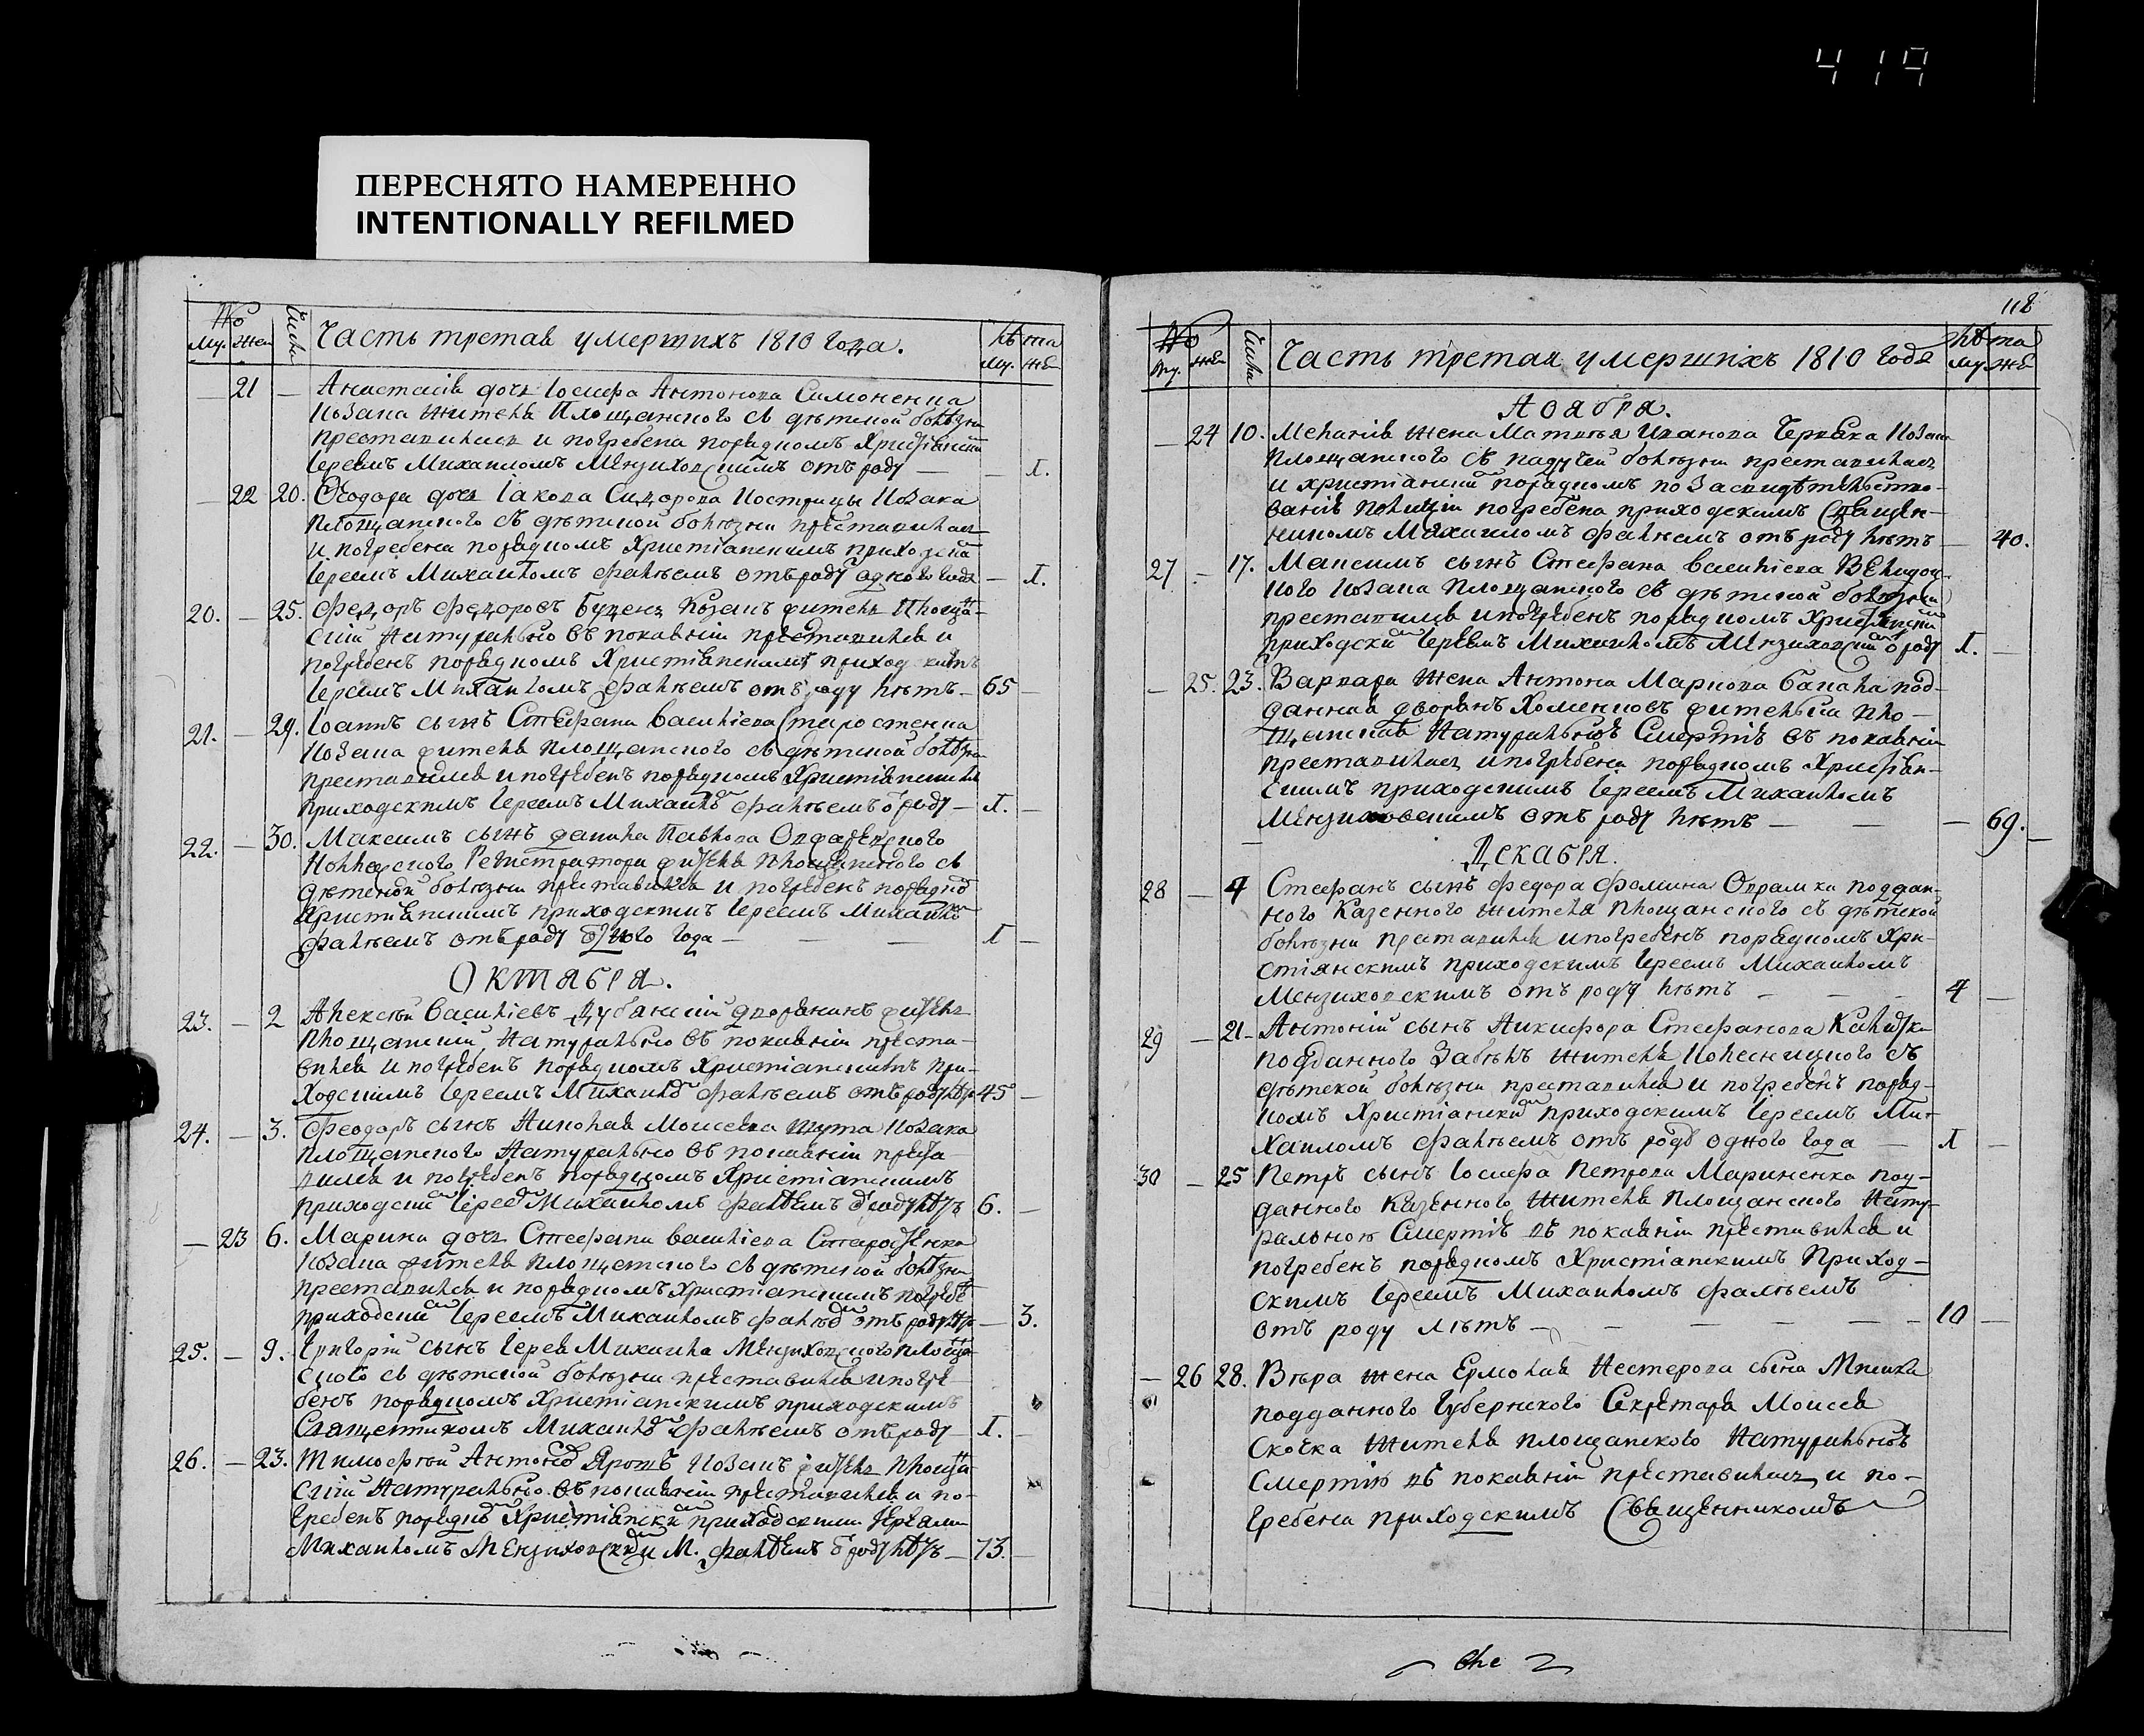 419
ПЕРЕСНЯТО НАМЕРЕННО
INTENTIONALLY REFILMED
№ Числа Часть третая умершихъ 1810 года. Лѣта
Му. Жен Му. Же
21 — Анастасія дочь Іосифа Антонова Симоненка
козака жителя Площанского съ дѣтской болѣзни
преставилися и погребена порядномъ Християнским
Іереемъ Михаиломъ Мензиховскимъ отъ роду — — 1.
— 22 20. Ѳеодора дочь Іакова Сидорова Кострицы козака
площанского съ дѣтской болѣзни преставилися
и погребена порядномъ Христіанскимъ приходским
Іереемъ Михаиломъ Фалѣемъ отъ роду одного года — 1.
20. — 25. Федоръ Федоровъ Буценъ Козакъ житель Площан-
скій Натурально въ покаяніи преставился и
погребенъ поряднomъ Христіанскимъ приходскимъ
Іереемъ Михаиломъ Фалѣемъ отъ роду лѣтъ — 65 —
21. — 29. Іоаннъ сынъ Стефана Василіева Старостенка
козака жителя площанского съ дѣтской болѣзни
преставился и погребенъ порядномъ Христіанскимъ
приходскимъ Іереемъ Михаиломъ Фалѣемъ о роду — 1. —
22. — 30. Максимъ сынъ Данила Павлова
Коллежского Регистратора жителя площанского съ
дѣтской болѣзни преставился и погребенъ порядно
Христіанскимъ приходскимъ Іереемъ Михаило
Фалѣемъ отъ роду одного года — — — 1 —
Октября.
23. — 2 Алексѣй Василіевъ Дубянскій дворянинъ житель
площанский, Натурально въ покаяніи преста-
вился и погребенъ порядномъ Христіанскимъ при-
ходскимъ Іереемъ Михаило Фалѣемъ отъ роду лѣтъ 45 —
24. — 3. Феодоръ сынъ Николая Моисеева Шута козака
площанского Натурально въ покаяніи преста-
вился и погребенъ порядномъ Христіанскимъ
приходским Іереем Михаиломъ Фалѣемъ о роду лѣтъ 6. —
— 23 6. Марина дочь Стефана Василіева Старостенка
козака жителя площанского съ дѣтской болѣзни
преставился и порядномъ Христіанскимъ погребе
приходским Іереемъ Михаиломъ Фалѣем отъ роду лѣтъ — 3.
25. — 9. Григорій сынъ Іерея Михаила Мензиховского площан
ского съ дѣтской болѣзни преставился и погре
бенъ порядномъ Христіанскимъ приходскимъ
Священникомъ Михаило Фалѣемъ отъ роду — 1. —
26. — 23. Тимофей Антонов козакъ житель площан
скій Натурально въ покаяніи преставился и по-
гребенъ порядно Християнским приходскими Іереами
Михаиломъ Мензиховским и М. Фалѣемъ о роду лѣтъ — 73. —
118
№ Числа Часть третая умершихъ 1810 года Лѣта
Му. Же Му. Же
Ноября.
— 24 10. Меланія жена Матвѣя Иванова Черняка козака
площанского съ падучей болѣзни преставилися
и христіанским порядномъ по засвидѣтельство-
ванію полиціи погребена приходскимъ Священ-
никомъ Михаиломъ Фалѣемъ отъ роду лѣтъ — 40.
27 — 17. Максимъ сынъ Стефана Василіева
козака Площанского съ дѣтской болѣзни
преставился и погребенъ порядномъ Християнским
приходским Іереемъ Михаиломъ Мензиховским о роду 1. —
— 25. 23. Варвара жена Антона Маркова под-
данная дворянъ Хоменковъ жителька пло-
щанская Натуральною Смертію въ покаяніи
преставилися и погребена порядномъ Християн-
скимъ приходскимъ Іереемъ Михаиломъ
Мензиховскимъ отъ роду лѣтъ — — — 69. —
Декабря.
28 — 4 Стефанъ сынъ Федора Фомина поддан-
ного Казенного жителя площанского съ дѣтской
болѣзни преставился и погребенъ порядномъ Хри-
стіянскимъ приходскимъ Іереемъ Михаиломъ
Мензиховскимъ отъ роду лѣтъ — — — 4 —
29 — 21 Антоній сынъ Никифора Стефанова
подданного Забѣлъ жителя Колесницкого съ
дѣтской болѣзни преставился и погребенъ поряд-
номъ Христіанским приходскимъ Іереемъ Ми-
хаиломъ Фалѣемъ отъ роду одного года — 1 —
30 — 25 Петръ сынъ Іосифа Петрова Мариненка под-
данного Казенного жителя площанского Нату-
ральною Смертію въ покаяніи преставился и
погребенъ порядномъ Христіанскимъ Приход-
скимъ Іереемъ Михаиломъ Фалѣемъ
отъ роду лѣтъ — — — — — 10 —
— 26 28. Вѣра жена Ермолая Нестерова сына
подданного Губернского Секретаря Моисея
жителя площанского Натуральною
Смертію въ покаяніи преставилися и по-
гребена приходскимъ Священникомъ